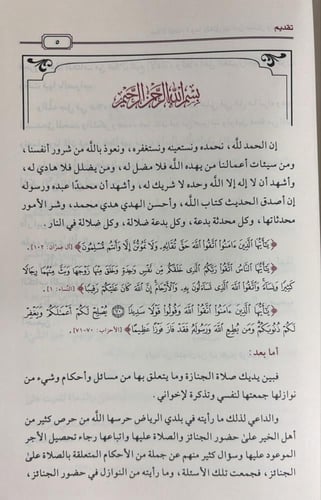 تقديم
٥
بسم الله الرحمن الرحيم
إن الحمد للَّه، نحمده ونستعينه ونستغفره، ونعوذ باللَّه من شرور أنفسنا،
ومن سيئات أعمالنا من يهده اللَّه فلا مضل له، ومن يضلل فلا هادي له،
وأشهد أن لا إله إلا اللَّه وحده لا شريك له، وأشهد أن محمدًا عبده ورسوله
إن أصدق الحديث كتاب اللَّه، وأحسن الهدي هدي محمد، وشر الأمور
محدثاتها، وكل محدثة بدعة، وكل بدعة ضلالة، وكل ضلالة في النار.
﴿يَٰٓأَيُّهَا ٱلَّذِينَ ءَامَنُوا۟ ٱتَّقُوا۟ ٱللَّهَ حَقَّ تُقَاتِهِۦ وَلَا تَمُوتُنَّ إِلَّا وَأَنتُم مُّسْلِمُونَ﴾ [آل عمران: ١٠٢].
﴿يَٰٓأَيُّهَا ٱلنَّاسُ ٱتَّقُوا۟ رَبَّكُمُ ٱلَّذِى خَلَقَكُم مِّن نَّفْسٍ وَٰحِدَةٍ وَخَلَقَ مِنْهَا زَوْجَهَا وَبَثَّ مِنْهُمَا رِجَالًا
كَثِيرًا وَنِسَآءً وَٱتَّقُوا۟ ٱللَّهَ ٱلَّذِى تَسَآءَلُونَ بِهِۦ وَٱلْأَرْحَامَ إِنَّ ٱللَّهَ كَانَ عَلَيْكُمْ رَقِيبًا﴾ [النساء: ١].
﴿يَٰٓأَيُّهَا ٱلَّذِينَ ءَامَنُوا۟ ٱتَّقُوا۟ ٱللَّهَ وَقُولُوا۟ قَوْلًا سَدِيدًا ۝٧٠ يُصْلِحْ لَكُمْ أَعْمَٰلَكُمْ وَيَغْفِرْ
لَكُمْ ذُنُوبَكُمْ وَمَن يُطِعِ ٱللَّهَ وَرَسُولَهُۥ فَقَدْ فَازَ فَوْزًا عَظِيمًا﴾ [الأحزاب: ٧٠-٧١].
أما بعد:
فبين يديك صلاة الجنازة وما يتعلق بها من مسائل وأحكام وشيء من
نوازلها جمعتها لنفسي وتذكرة لإخواني.
والداعي لذلك ما رأيته في بلدي الرياض حرسها اللَّه من حرص كثير من
أهل الخير على حضور الجنائز والصلاة عليها واتباعها رجاء تحصيل الأجر
الموعود عليها وسؤال كثير منهم عن جملة من الأحكام المتعلقة بالصلاة على
الجنائز، فجمعت تلك الأسئلة، وما رأيته من النوازل في حضور الجنائز،